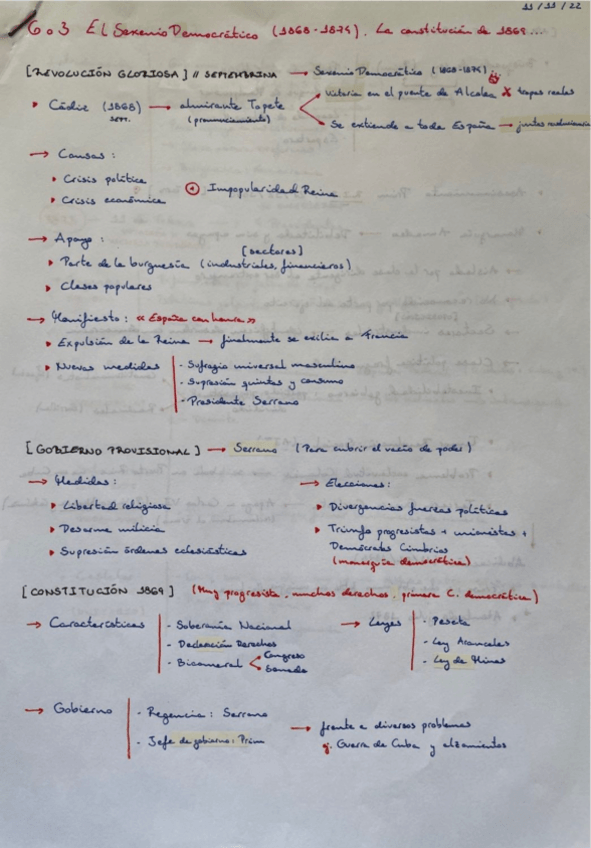 11 / 11 / 22
6.3 El Sexenio Democrático (1868-1874). La constitución de 1869...
[REVOLUCIÓN GLORIOSA] // SEPTEMBRINA → Sexenio Democrático (1868-1874)
▸ Cádiz (1868) → almirante Topete
victoria en el puente de Alcolea X tropas reales
sept. (pronunciamiento)
Se extiende a toda España → juntas revolucionarias
→ Causas:
▸ Crisis política
⊕ Impopularidad Reina
▸ Crisis económica
→ Apoyo: [sectores]
▸ Parte de la burguesía (industriales, financieros)
▸ Clases populares
→ Manifiesto: «España con honra»
▸ Expulsión de la Reina → finalmente se exilia a Francia
▸ Nuevas medidas - Sufragio universal masculino
- Supresión quintas y consumo
- Presidente Serrano
[GOBIERNO PROVISIONAL] → Serrano (Para cubrir el vacío de poder)
→ Medidas:
▸ Libertad religiosa
▸ Desarme milicia
▸ Supresión órdenes eclesiásticas
→ Elecciones:
▸ Divergencias fuerzas políticas
▸ Triunfo progresistas + unionistas +
Demócratas Cimbrios
(monarquía democrática)
[CONSTITUCIÓN 1869] (Muy progresista, muchos derechos, primera C. democrática)
→ Características - Soberanía Nacional
- Declaración Derechos
- Bicameral Congreso
Senado
→ Leyes - Peseta
- Ley Aranceles
- Ley de Minas
→ Gobierno - Regencia: Serrano
- Jefe de gobierno: Prim
→ frente a diversos problemas
ej. Guerra de Cuba y alzamientos